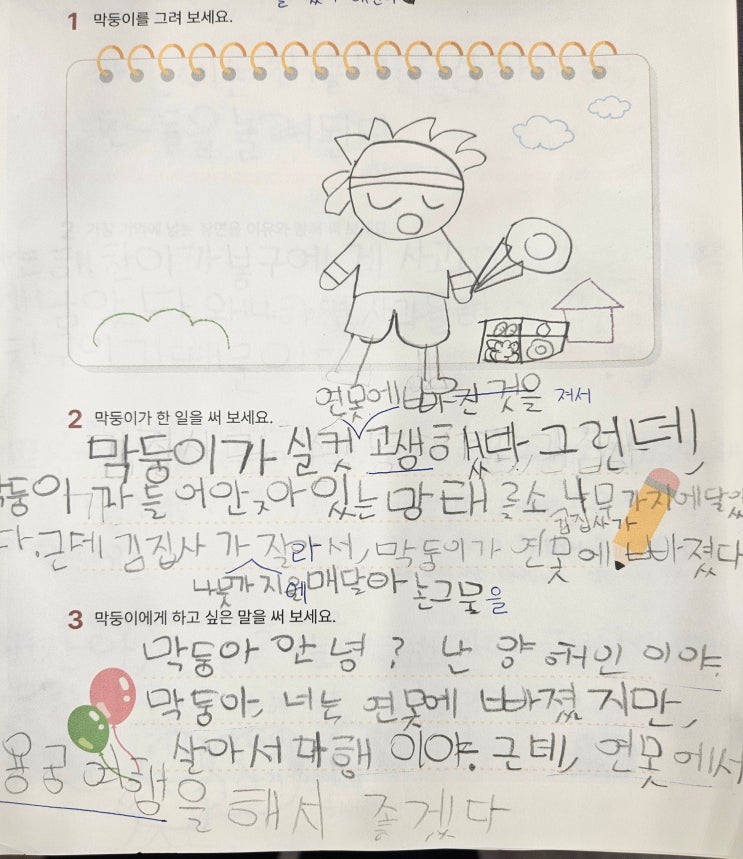 1 막둥이를 그려 보세요.
연못에 빠진 것을 져서
2 막둥이가 한 일을 써 보세요.
막둥이가 실컷 고생했다 그런데,
막둥이가 들어안자아 있는 망태를 소나무 가지에 달았
다. 근데 김집사가 잘라서, 막둥이가 연못에 빠졌다
김집사가
나뭇가지에 매달아 논 그물을
3 막둥이에게 하고 싶은 말을 써 보세요.
막둥아 안녕? 난 양해인이야.
막둥아, 너는 연못에 빠졌지만,
살아서 다행이야. 근데, 연못에서
용궁여행을 해서 좋겠다